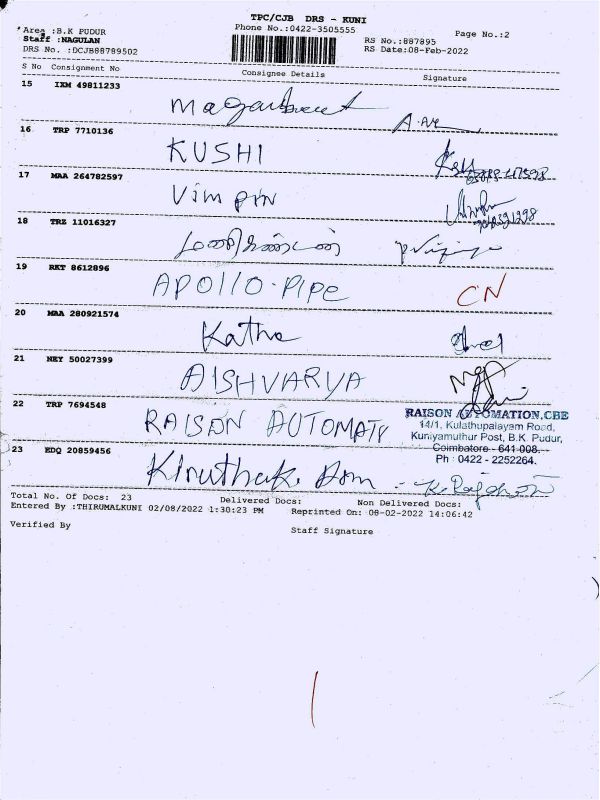 TPC/CJB DRS - KUNI
Area :B.K PUDUR
Phone No.:0422-3505555
Page No.:2
Staff :NAGULAN
RS No.:887895
DRS No. :DCJB88789502
RS Date:08-Feb-2022
S No Consignment No Consignee Details Signature
15 IXM 49811233
A.Ave
16 TRP 7710136
KUSHI
17 MAA 264782597
Vim pin
18 TRZ 11016327
மணிகண்டன்
19 RKT 8612896
APOLLO-PIPE CN
20 MAA 280921574
Katha
21 NEY 50027399
AISHVARYA
22 TRP 7694548
RAISON AUTOMATI
RAISON AUTOMATION,CBE
14/1, Kulathupalayam Road,
Kuniyamuthur Post, B.K. Pudur,
Coimbatore - 641 008.
Ph : 0422 - 2252264.
23 EDQ 20859456
Total No. Of Docs: 23 Delivered Docs: Non Delivered Docs:
Entered By :THIRUMALKUNI 02/08/2022 1:30:23 PM Reprinted On: 08-02-2022 14:06:42
Verified By
Staff Signature